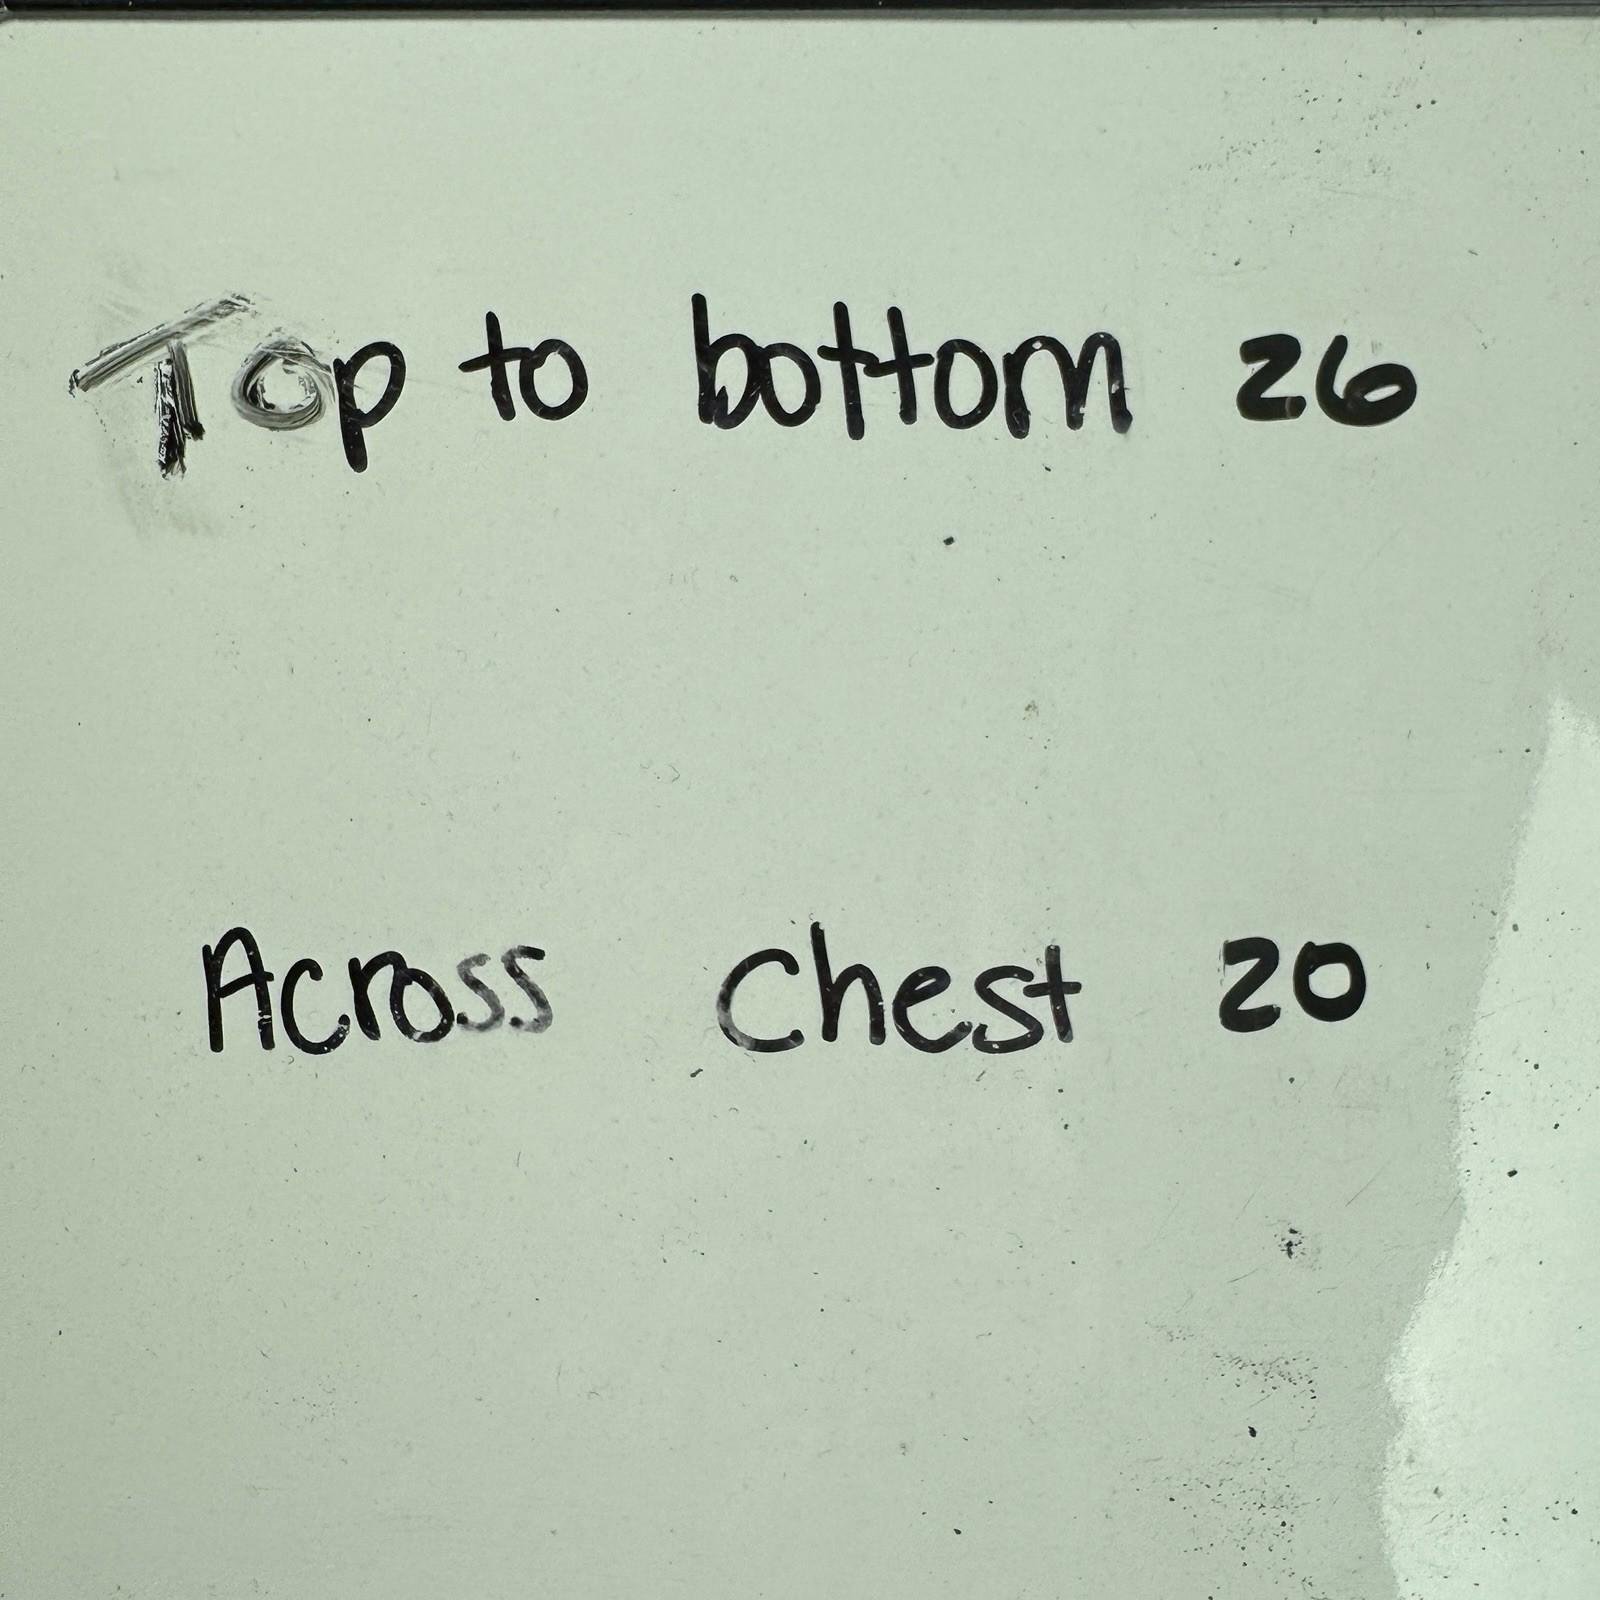 Top to bottom 26
Across Chest 20